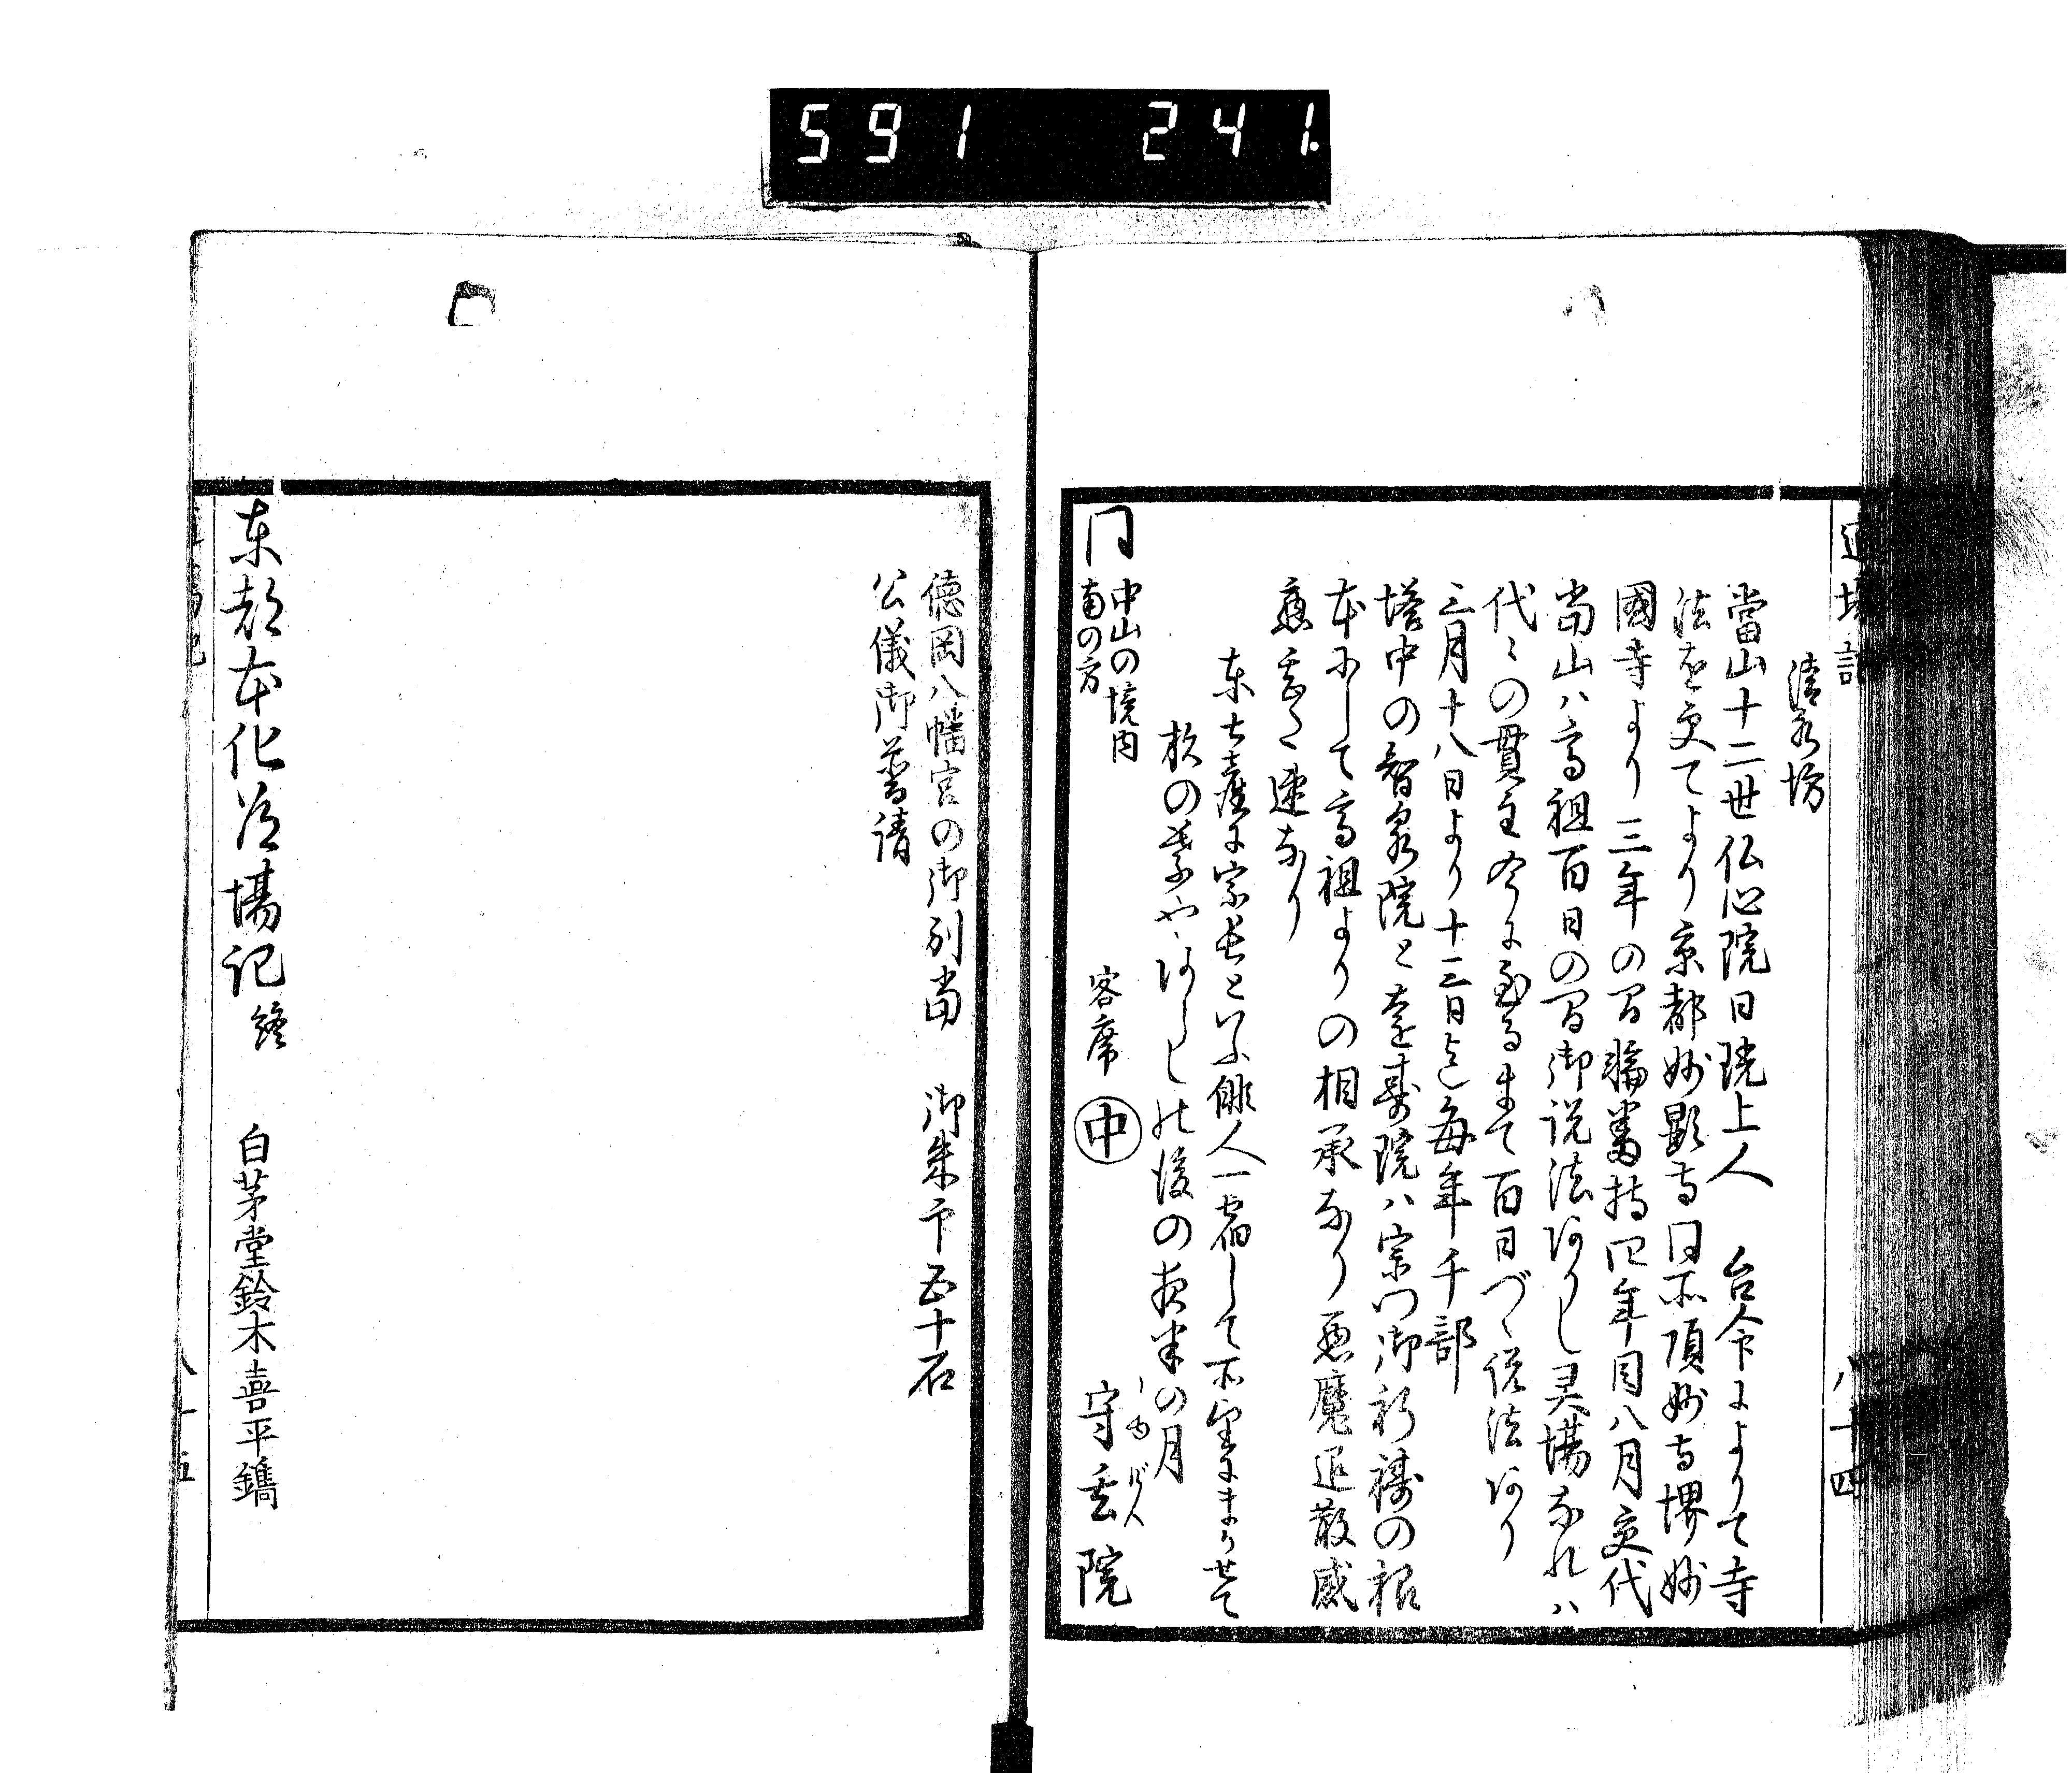 591 241.
道場記
八十四
清水坊
當山十二世仏心院日珖上人 台命によりて寺
法を交てより京都妙顕寺同所頂妙寺堺妙
國寺より三年の間輪番持四年目八月交代
当山ハ高祖百日の間御説法ありし灵場なれハ
代々の貫主今に至るまて百日づゝ説法あり
三月十八日より十三日迄毎年千部
塔中の智泉院と遠壽院ハ宗門御祈祷の根
本にして高祖よりの相承なり悪魔退散感
應甚速なり
東土産に宗長といふ俳人一宿して所望にまかせて
杉の葉やあらしの後の夜半の月
同 中山の境内
南の方
客席 中 守玄院
徳岡八幡宮の御別当 御朱印五十石
公儀御普請
東都本化道場記 終
白茅堂鈴木喜平鐫
八十五